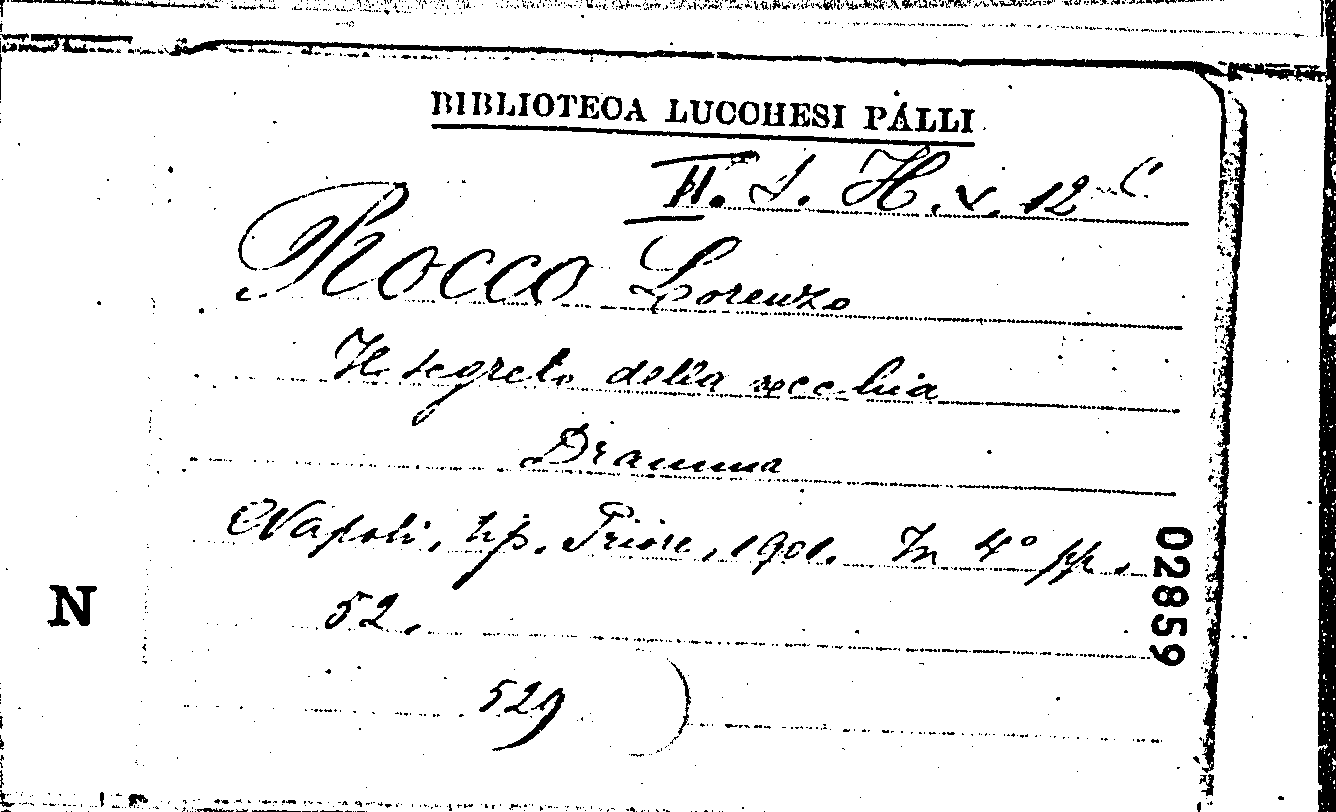 BIBLIOTECA LUCCHESI PALLI
II. S. H. 12
Rocco Lorenzo
Il segreto della vecchia
Dramma
Napoli, tip. Priore, 1901. In 4° pp.
52.
529
N
02859